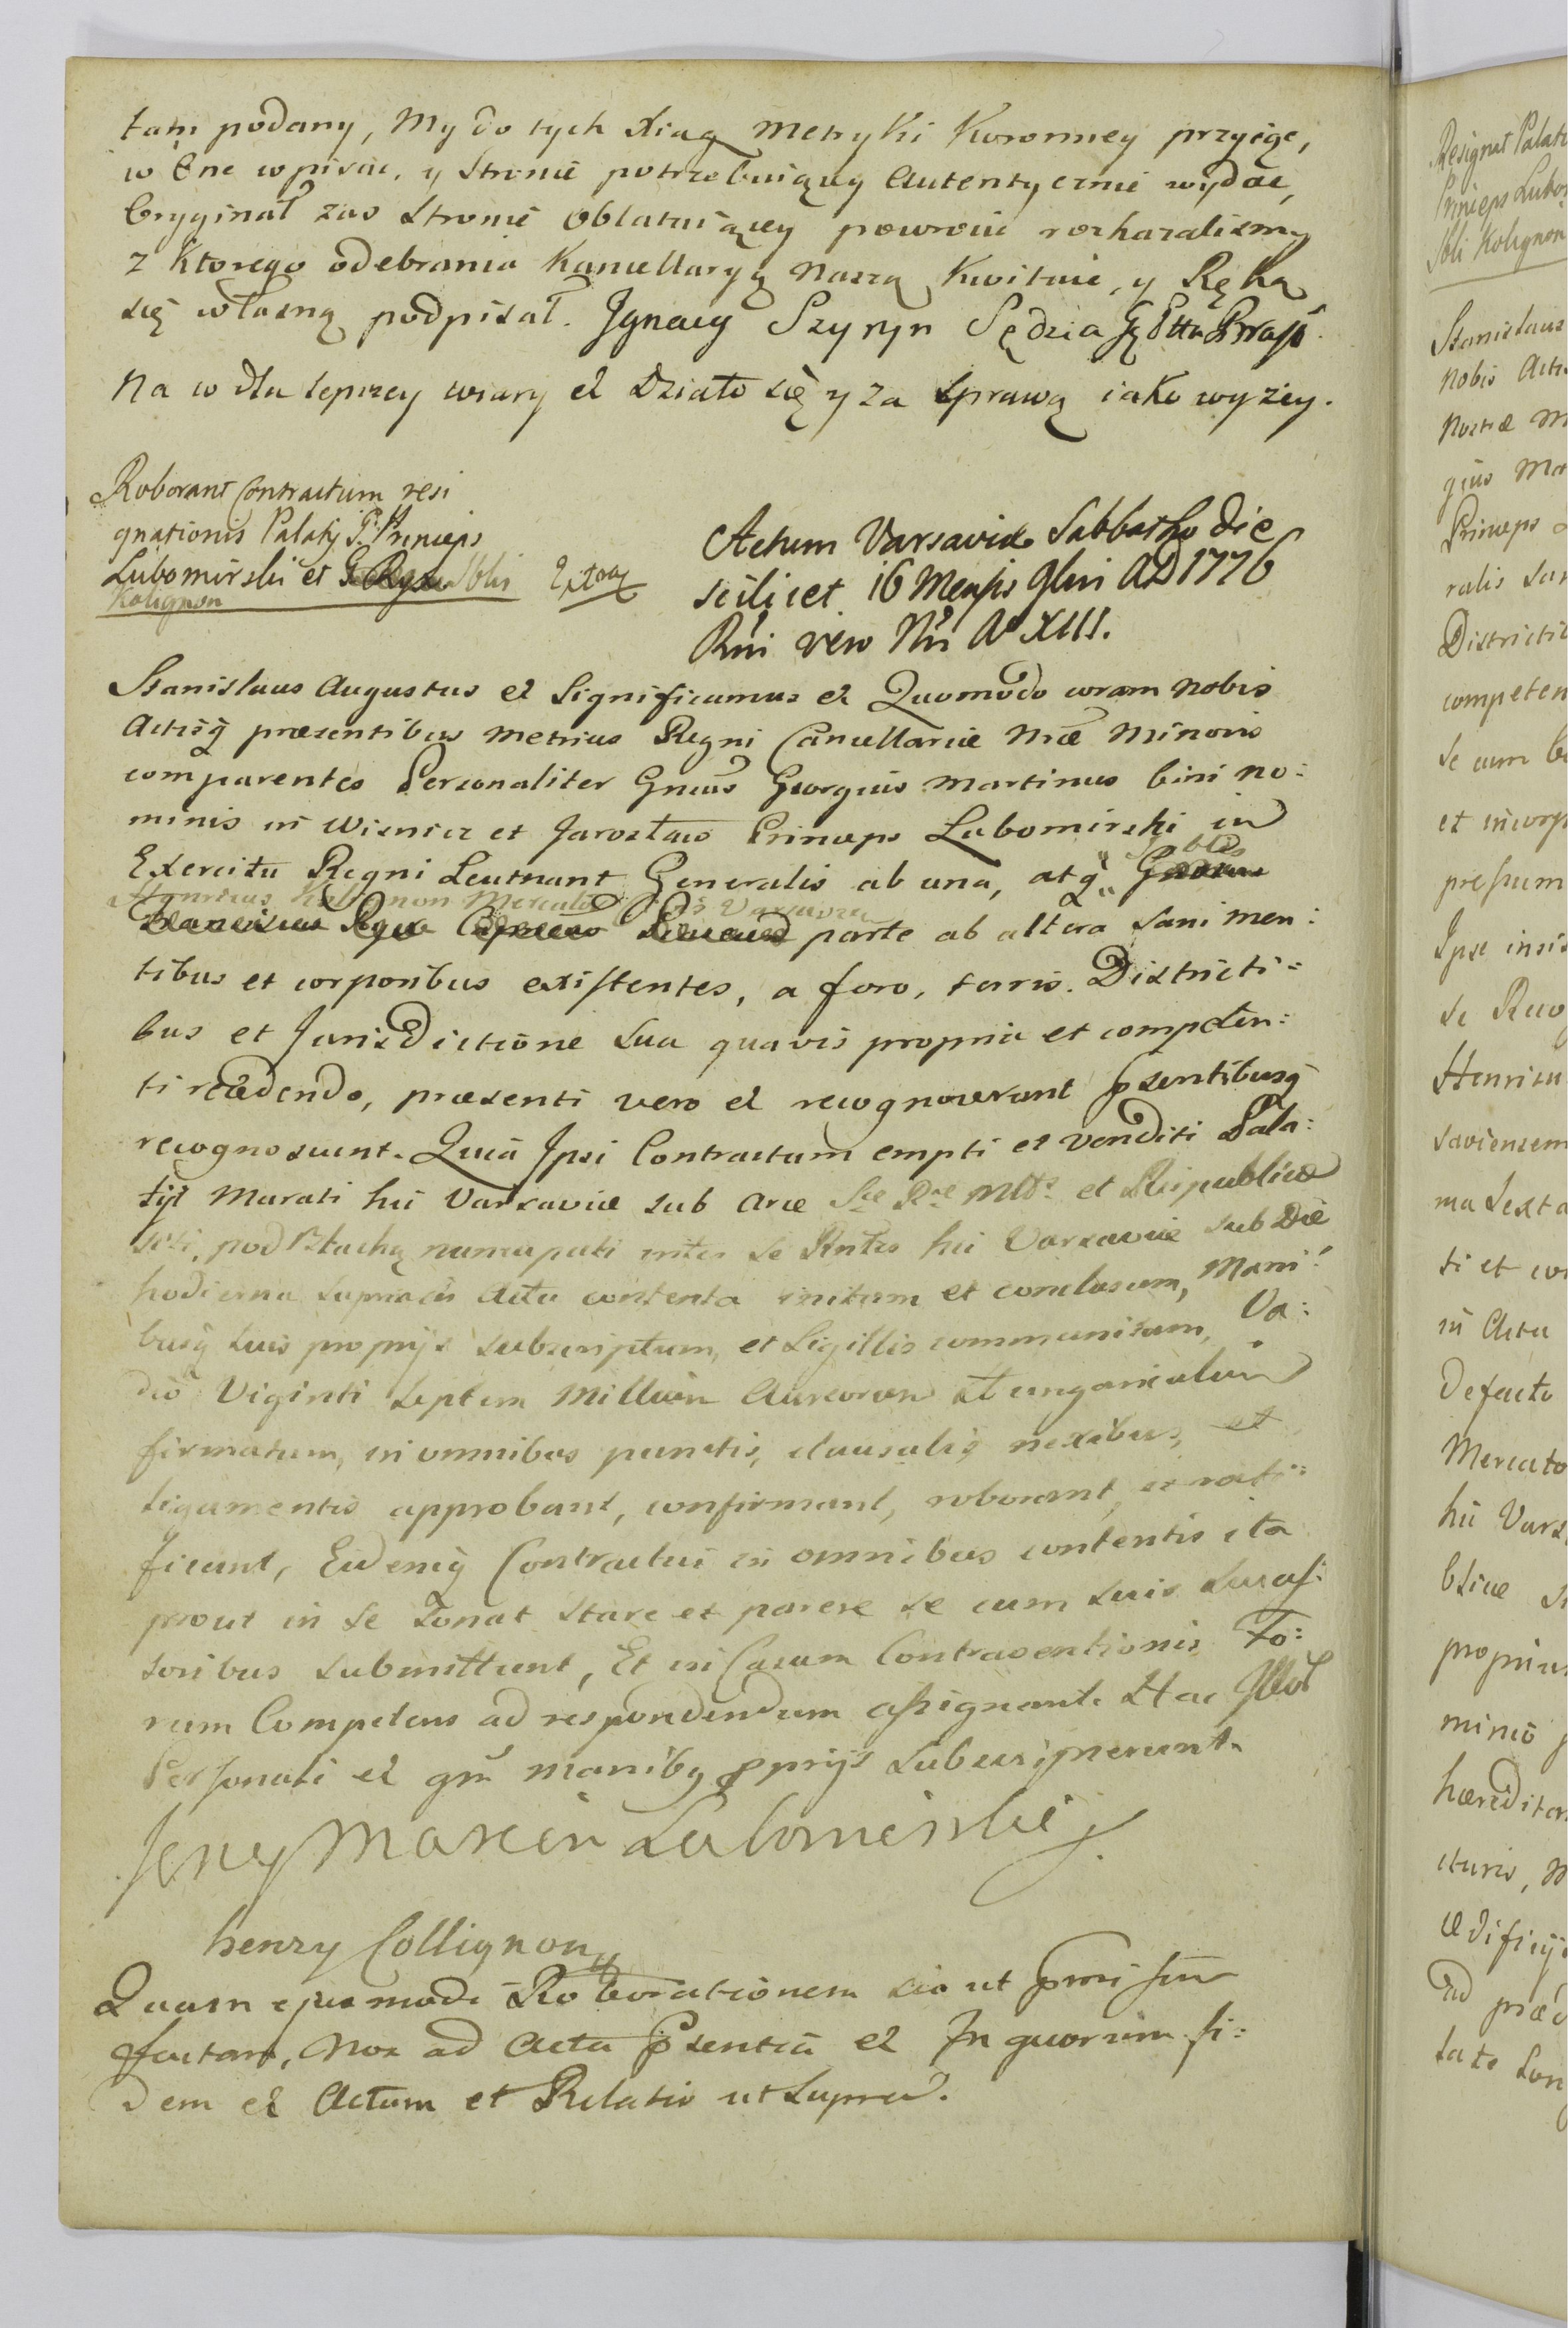 tam podany, My do tych Xiąg Metryki Koronney przyiąc,
w One wpisac, y Stronie potrzebuiącey Autentycznie wydac,
Oryginał zas Stronie Oblatuiącey powrocic roskazalismy
z Ktorego odebrania Kancellaryą Naszą Kwituie, y Ręką
się własną podpisał. Jgnacy Szyryn Sędzia
Na co dla lepszey wiary et Działo się y za Sprawą iako wyzey.
Roborant Contractum resi
gnationis Palatij P. Princeps
Lubomirski et Sbli Extrax
Kolignon
Actum Varsaviæ Sabbatho die
scilicet 16 Mensis 9bris AD 1776
Rni vero Nri Ao XIII.
Stanislaus Augustus et Significamus et Quomodo coram Nobis
Actisq præsentibus Metrices Regni Cancellariæ Nræ Minoris
comparentes Personaliter Gnosus Georgius Martinus bini no:
minis in Wisnicz et Jarosław Princeps Lubomirski in
Exercitu Regni Leutnant Generalis ab una, atq Sbblis
Henricus Kolignon Mercator Varsavien
parte ab altera Sani men:
tibus et corporibus existentes, a foro, terris. Districti:
bus et Jurisdictione Sua quavis propria et competen:
ti recedendo, præsenti vero et recognoverunt psentibusq
recognoscunt. Quia Ipsi Contractum empti et venditi Pala:
tij Murati hic Varsaviæ sub Arce Sæ Ræ Mttis et Reipublicæ
siti, pod Blachą nuncupati inter se Rntes hic Varsaviæ sub Die
hodierna supra in Actu contenta initum et conclusum, Mani:
busq suis proprijs subscriptum, et Sigillis communitum, Va:
dio Viginti Septem Millium Aureorum Hungaricalium
firmatum, in omnibus punctis, clausulis, nexibus, et
ligamentis approbant, confirmant, roborant, et rati:
ficant, Eidemq Contractui in omnibus contentis ita
prout in se Sonat stare et parere se cum suis Succes:
soribus submittunt, Et in Casum Contraventionis Fo:
rum Competens ad respondendum assignant. Hac
Personati et qm manibq pprijs Subscripserunt.
Jerzy Marcin Lubomirski
henry Collignon
Quam ejusmodi Roborationem sic ut pmissum
factam, Nos ad Acta psentia et In quorum fi:
dem et Actum et Relatio ut Supra.
Resignat Palati
Princeps Lubom
Sbli Kolignon
Stanislaus
Nobis Actis
Nostræ M
gius Mar
Princeps
ralis san
Districtib
competen
se cum b
et incorp
pressum
Ipse insi
se Reco
Henricu
saviensem
ma Sexta
ti et con
in Actu
Defacto
Mercato
hic Vars
blicæ
proprias
minio
hæreditar
cturis,
ædificij
ad præd
lato